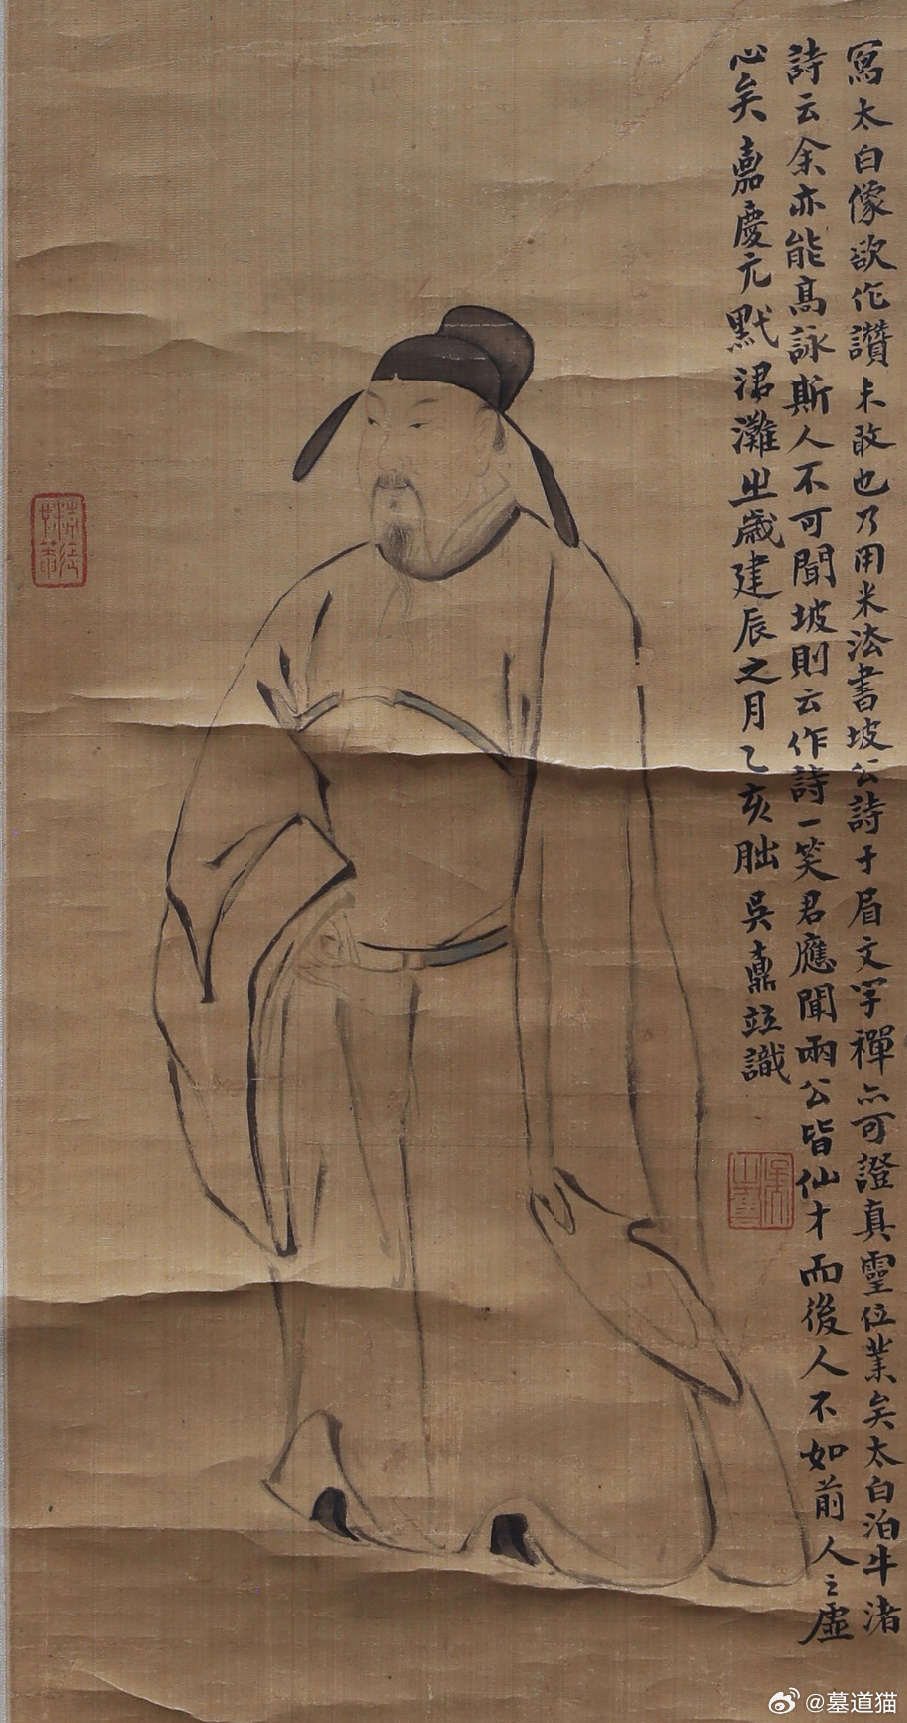 寫太白像欲作讚未敢也乃用米法書坡公詩于眉文字禪亦可證真靈位業矣太白泊牛渚
詩云余亦能高詠斯人不可聞坡則云作詩一笑君應聞兩公皆仙才而後人不如前人之虛
心矣嘉慶亢默涒灘之歲建辰之月乙亥朏吳鼒竝識
@墓道猫